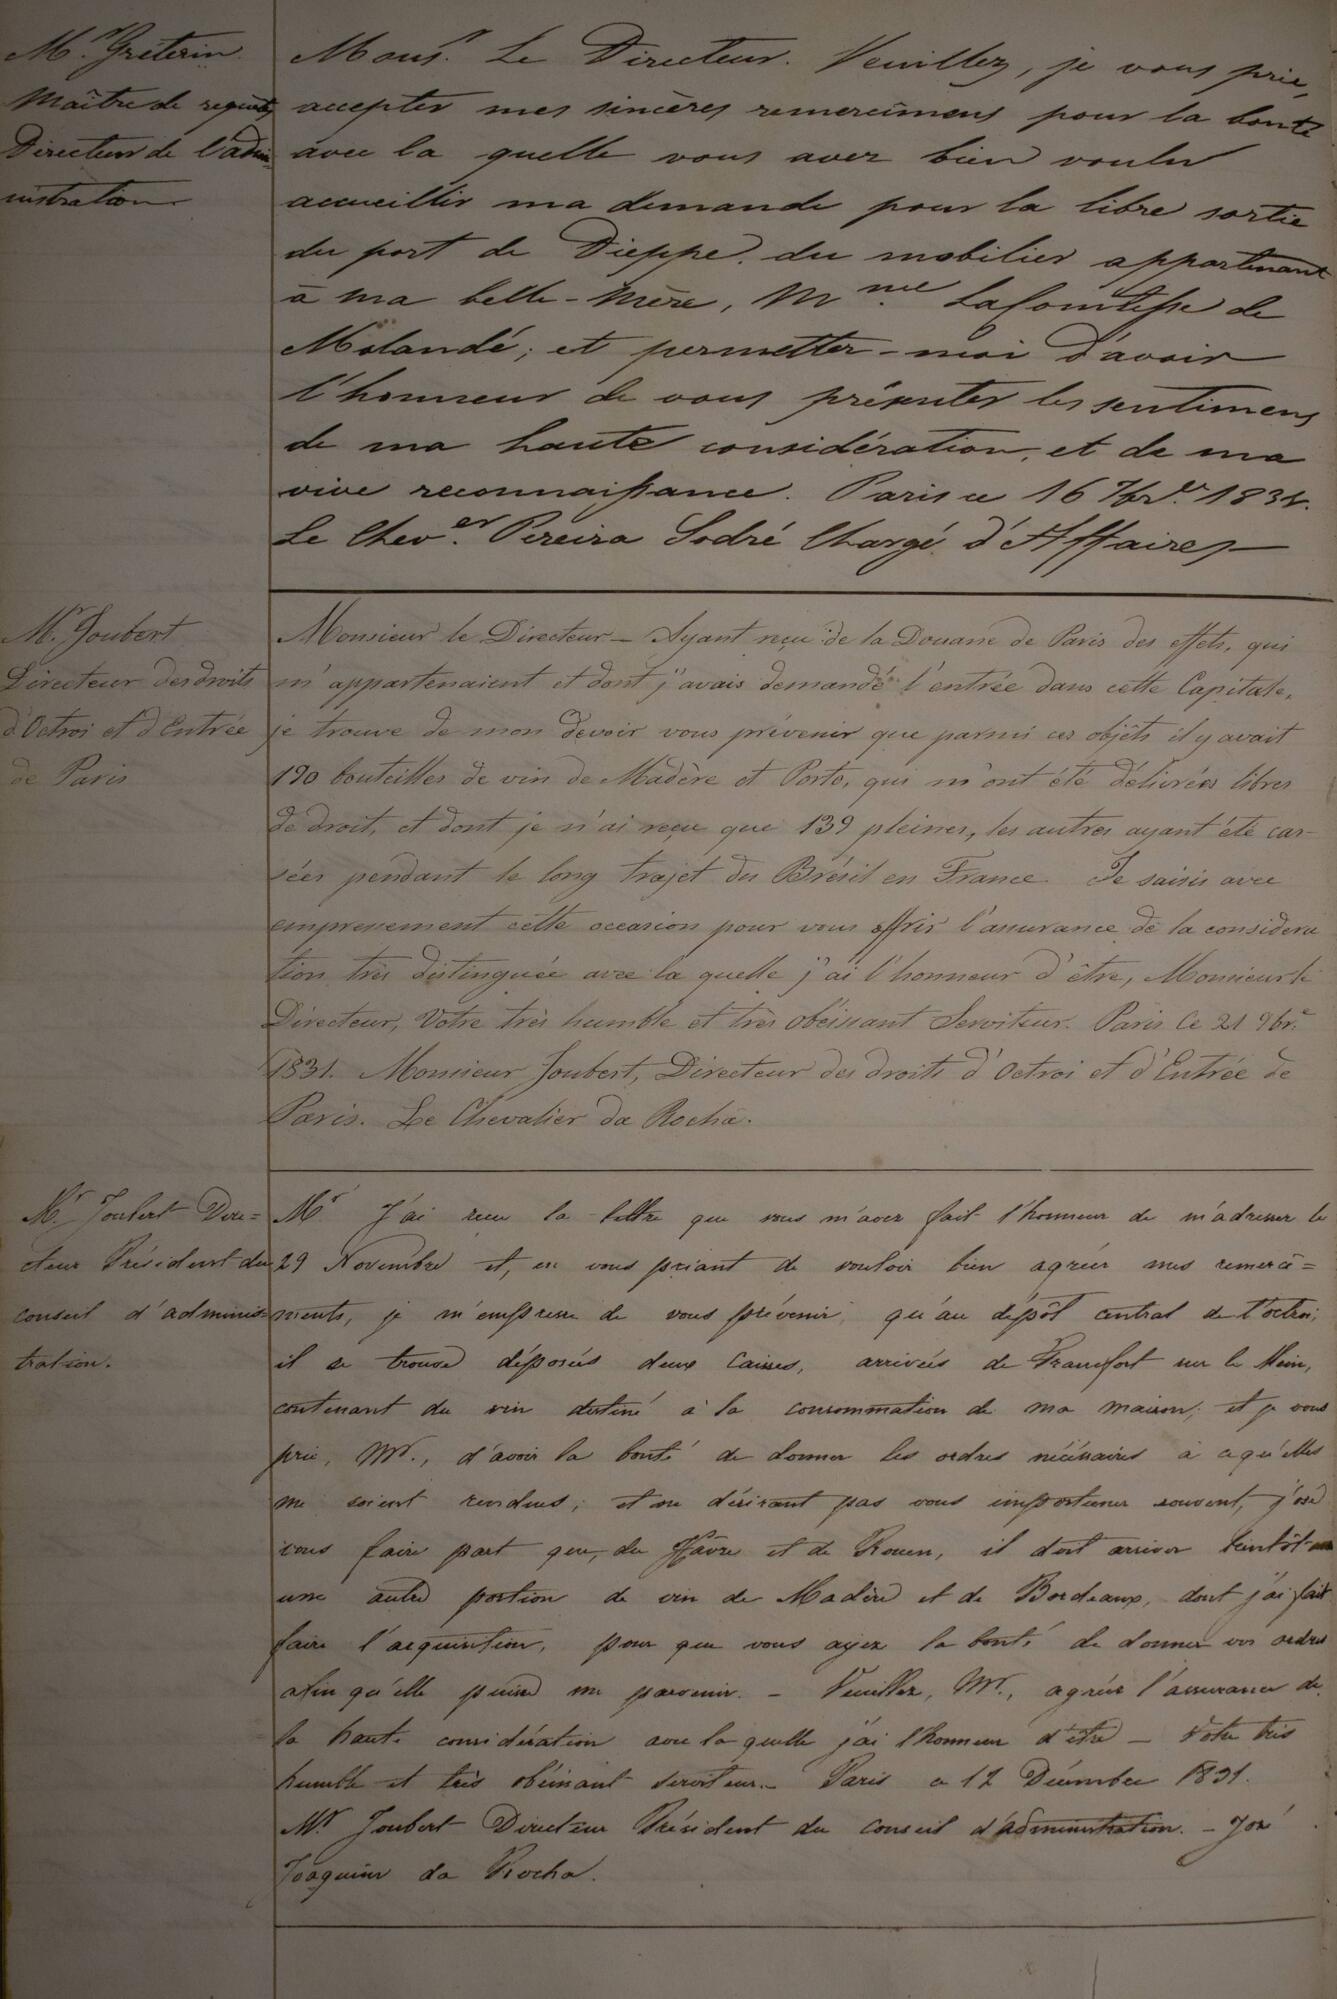 Mr. Gréterin
Maître de requêtes
Directeur de l'admi
nistration
Monsr. Le Directeur. Veuillez, je vous prie,
accepter mes sincères remercîmens pour la bonté
avec la quelle vous avez bien voulu
accueillir ma demande pour la libre sortie
du port de Dieppe, du mobilier appartenant
à ma belle-Mère, Mme La Comtesse de
Molandé; et permetter-moi d'avoir
l'honneur de vous présenter les sentimens
de ma haute considération, et de ma
vive reconnaissance. Paris ce 16 7bre. 1831.
Le Chever. Pereira Sodré Chargé d'Affaires
Mr. Joubert
Directeur des droits
d'Octroi et d'Entrée
de Paris
Monsieur le Directeur _ Ayant reçu de la Douane de Paris des effets, qui
m'appartenaient et dont j'avais demandé l'entrée dans cette Capitale,
je trouve de mon devoir vous prévenir que parmi ces objêts il y avait
190 bouteilles de vin de Madère et Porto, qui m'ont été délivrées libres
de droit, et dont je n'ai reçu que 139 pleines, les autres ayant été cas-
sées pendant le long trajet du Brésil en France. Je saisis avec
empressement cette occasion pour vous offrir l'assurance de la considera
tion très distinguée avec la quelle j'ai l'honneur d'être, Monsieur le
Directeur, Votre très humble et très obéissant Serviteur. Paris le 21 9bre.
1831. Monsieur Joubert, Directeur des droits d'Octroi et d'Entrée de
Paris. Le Chevalier da Rocha.
Mr. Joubert Dire=
cteur Président du
conseil d'adminis=
tration.
Mr. J'ai reçu la lettre que vous m'avez fait l'honneur de m'adresser le
29 Novembre et, en vous priant de vouloir bien agréer mes remercî=
ments, je m'empresse de vous prévenir, qu'au dépôt central de l'octroi,
il se trouve déposées deux Caisses, arrivées de Francfort sur le Mein,
contenant du vin destiné à la consommation de ma maison; et je vous
prie, Mr., d'avoir la bonté de donner les ordres nécéssaires à ce qu'elles
me soient rendues; et ne désirant pas vous importuner souvent, j'ose
vous faire part que, du Hâvre et de Rouen, il doit arriver bientôt
une autre portion de vin de Madère et de Bordeaux, dont j'ai fait
faire l'acquisition, pour que vous ayez la bonté de donner vos ordres
afin qu'elle puisse me parvenir. _ Veuillez, Mr., agréer l'assurance de
la haute considération avec la quelle j'ai l'honneur d'être _ Votre très
humble et très obéissant serviteur. _ Paris ce 12 Décembre 1831.
Mr Joubert Directeur Président du conseil d'administration. _ José
Joaquim da Rocha.